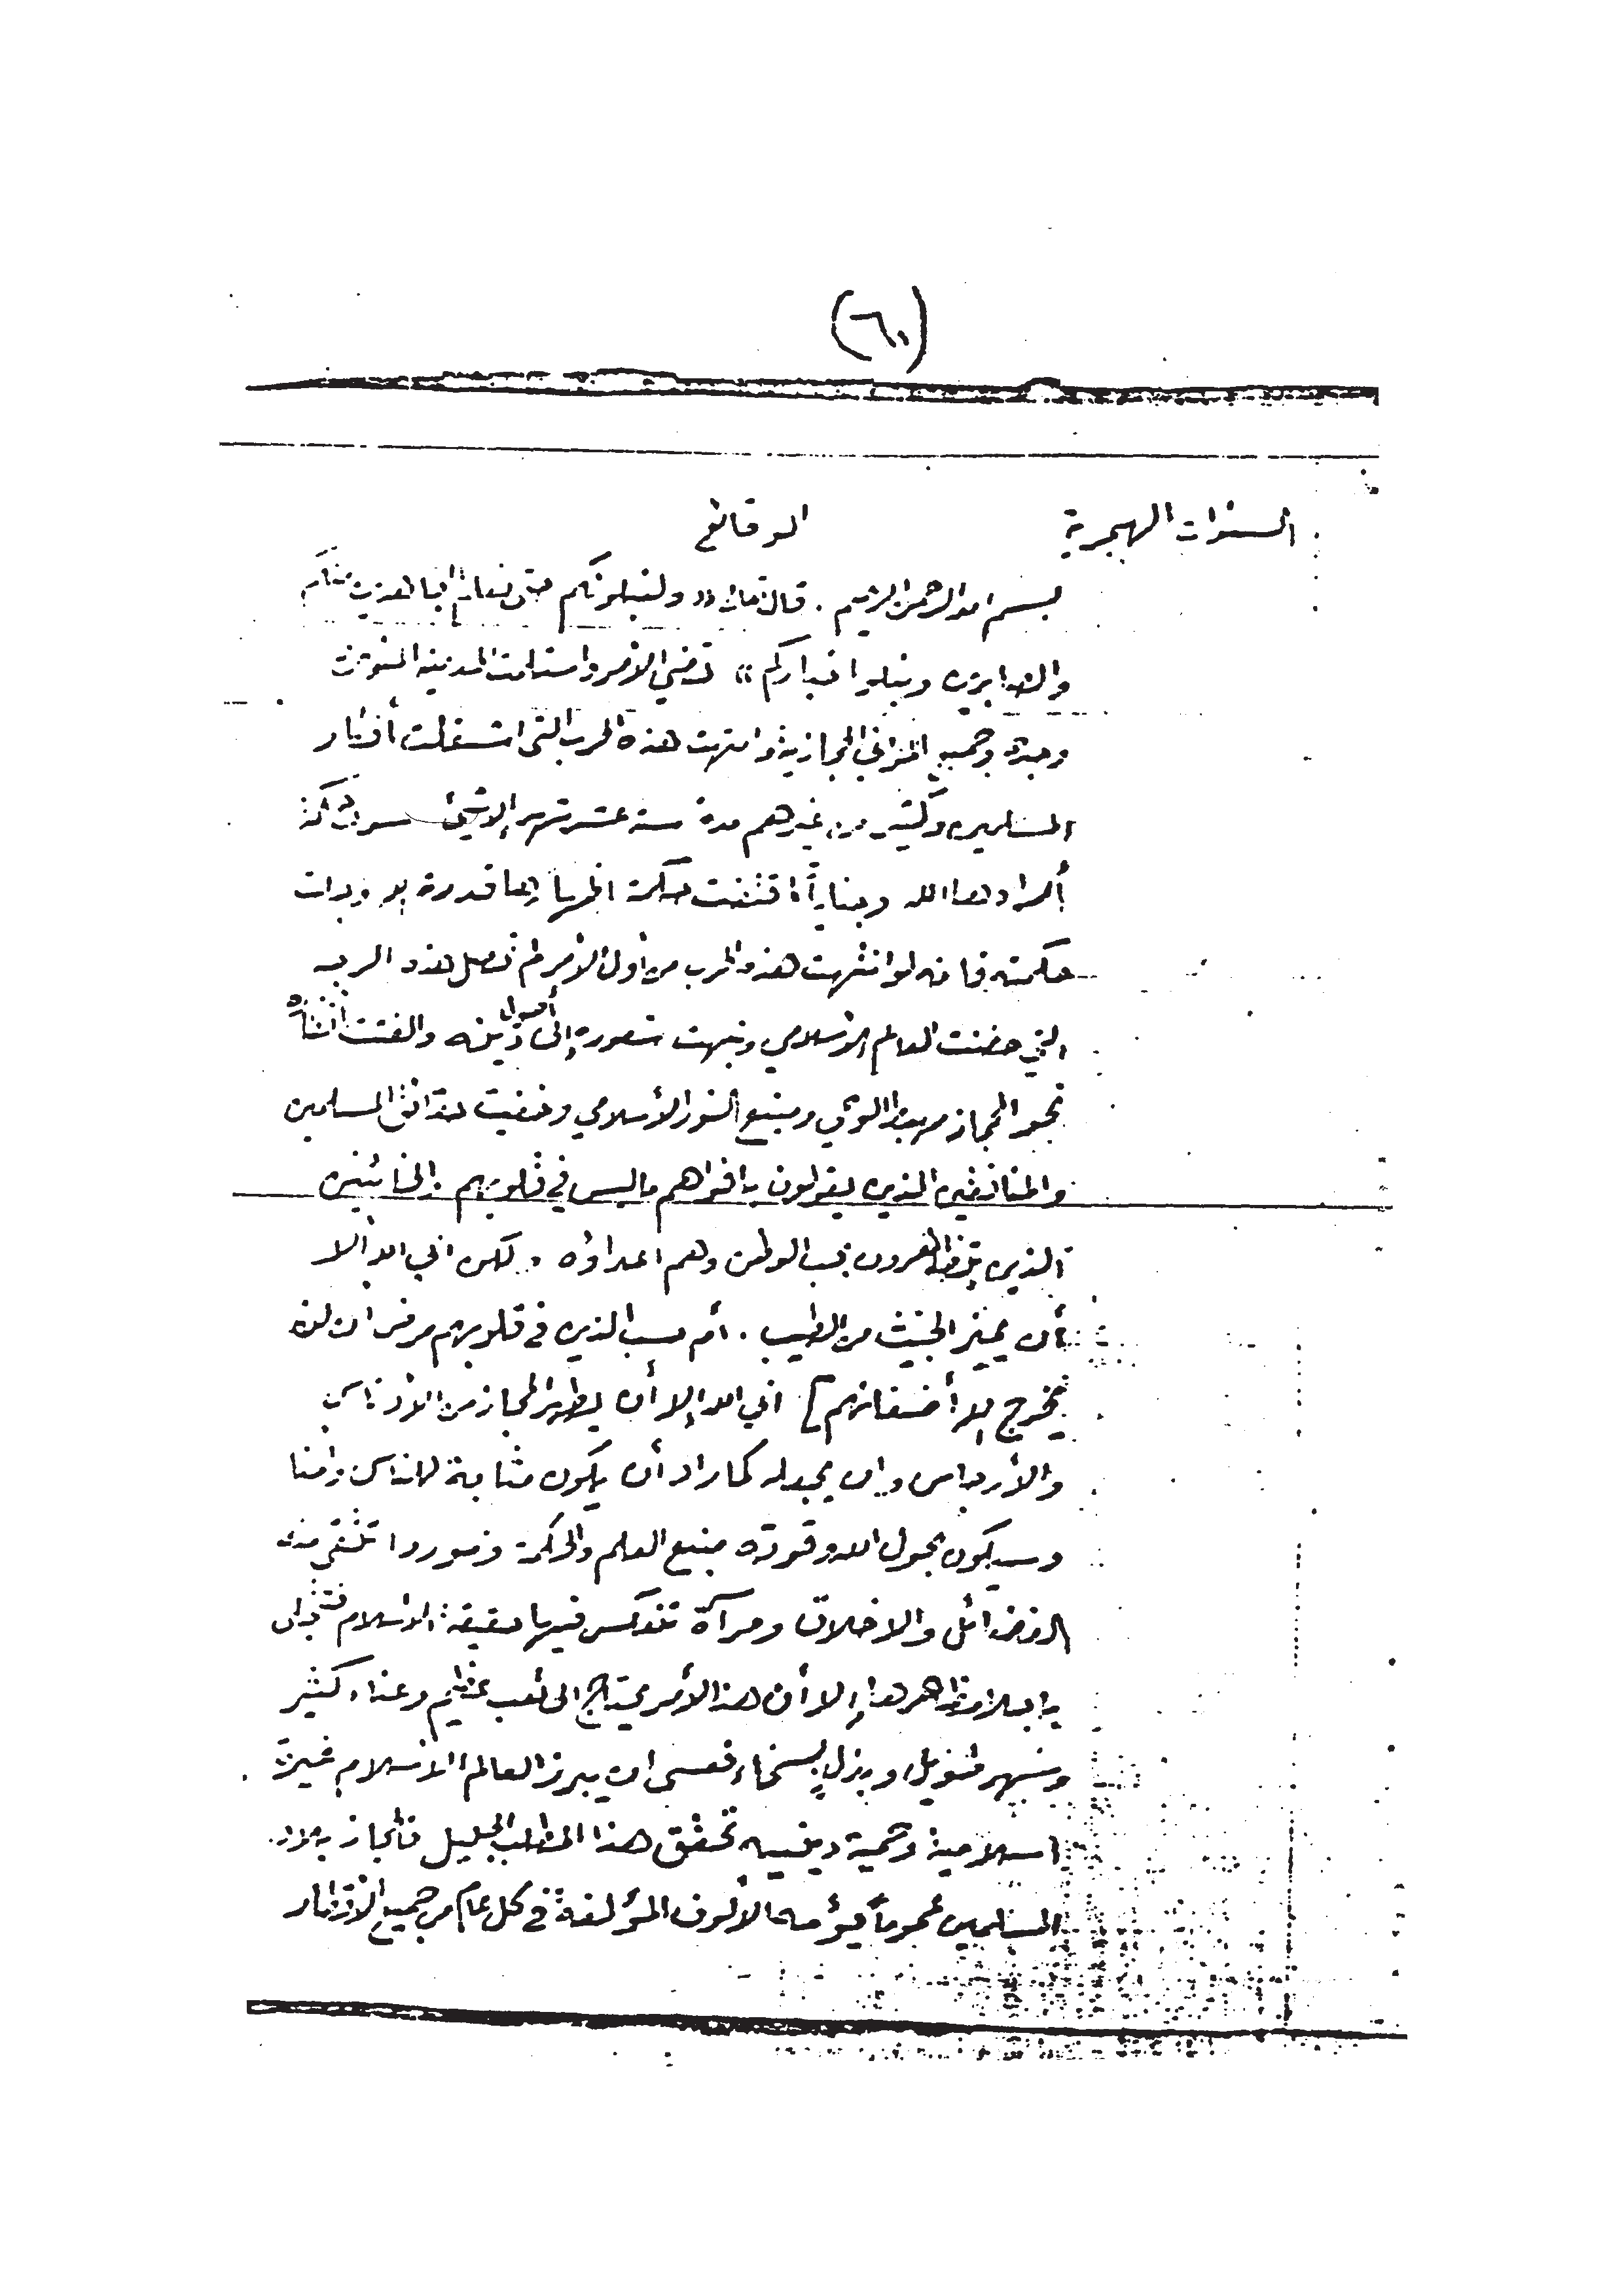 (٦٠)
السنوات الهجرية الوقائع
بسم الله الرحمن الرحيم . قال تعالى «ولنبلونكم حتى نعلم المجاهدين منكم
والصابرين ونبلوا اخباركم» قضي الأمر واستلمت المدينة المنورة
وجده وجميع المواني الحجازية وانتهت هذه الحرب التي اشغلت أفكار
المسلمين وكثير من غيرهم مدة ستة عشر شهر إلا شيئ
أرادها الله
حكمته فانه لو انتهت هذه الحرب من أول الأمر لم تحصل هذه الرجه
التي حضنت العالم الإسلامي ونبهت شعوره إلى أصول دينه والفتت أنظاره
نحو الحجاز مهبط الوحي ومنبع النور الأسلامي وخفيت حقائق المسلمين
والمنافقين الذين يقولون بافواههم ماليس في قلوبهم . الخائنين
الذين يتظاهرون بحب الوطن وهم اعداؤه . لكن ابى الله الا
أن يميز الخبيث من الطيب . أم حسب الذين في قلوبهم مرض ان لن
يخرج الله أضغانهم] ابى الله إلا أن يطهر الحجاز من الأدناس
والأرجاس وان يجعله كما اراد أن يكون مثابة للناس وامنا
وسيكون بحول الله وقوته منبع العلم والحكمة وموردا تستقى منه
الفضائل والاخلاق ومرآة تنعكس فيها حقيقة الإسلام
باجلا مظاهرها إلا أن هذا الأمر يحتاج الى تعب عظيم وعناء كثير
وسهر طويل وبذل بسخاء فعسى ان يبرز العالم الاسلامي غيرة
اسلامية وحمية دينيه تحقق هذا المطلب الجليل فالحجاز بلاد
المسلمين عموماً يؤمها الألوف المؤلفة في كل عام من جميع الأقطار